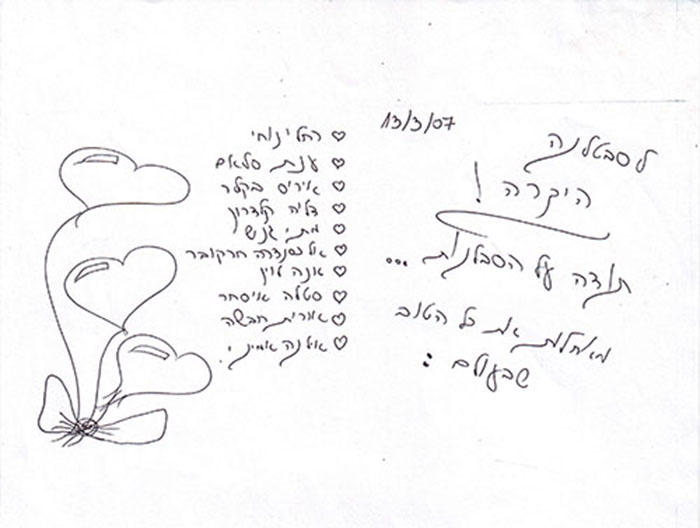 13/3/07
לסבטלנה
היקרה !
תודה על הסבלנות ...
מאחלות את כל הטוב
שבעולם :
♡ רחל ינוחי
♡ ענת סלאם
♡ איריס בקלר
♡ דליה קלדרון
♡ מתי גנש
♡ אלכסנדרה חרקובר
♡ אנה לוין
♡ סטלה איסחר
♡ אורית חבשה
♡ אולנה אמיני.